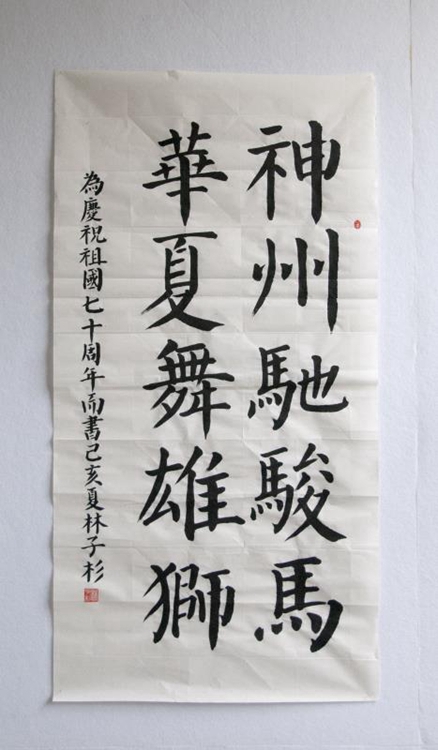 神州馳駿馬
華夏舞雄獅
為慶祝祖國七十周年而書己亥夏林子杉